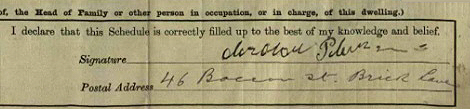 of, the Head of Family or other person in occupation, or in charge, of this dwelling.)
I declare that this Schedule is correctly filled up to the best of my knowledge and belief.
Signature
Postal Address 46 Bacon st. Brick Lane